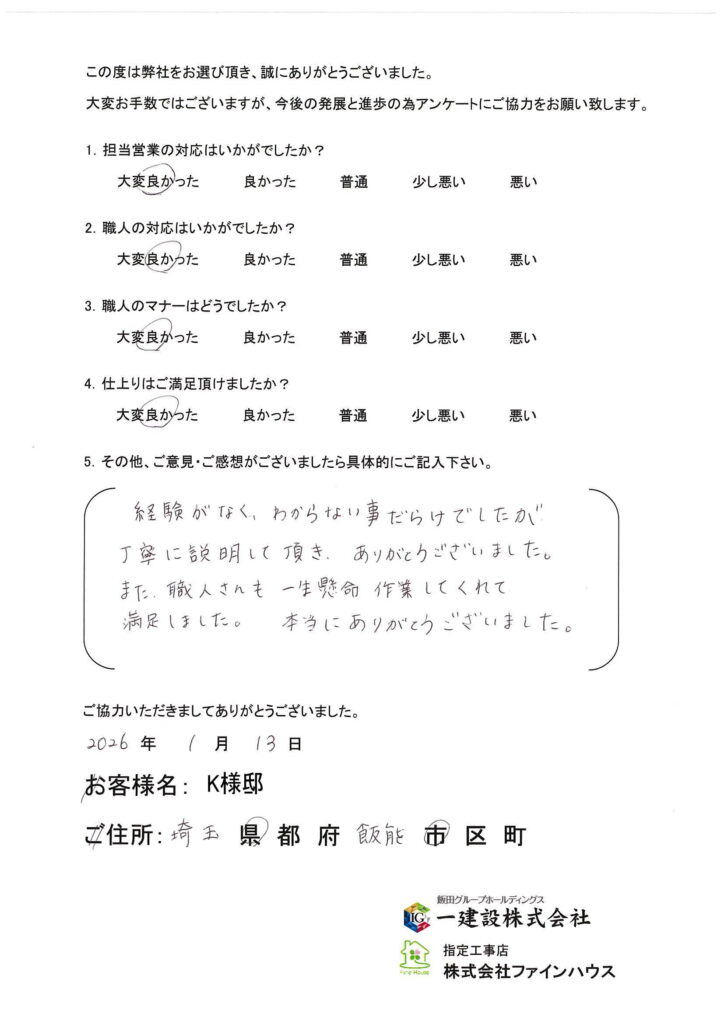 この度は弊社をお選び頂き、誠にありがとうございました。
大変お手数ではございますが、今後の発展と進歩の為アンケートにご協力をお願い致します。
1. 担当営業の対応はいかがでしたか？
大変良かった 良かった 普通 少し悪い 悪い
2. 職人の対応はいかがでしたか？
大変良かった 良かった 普通 少し悪い 悪い
3. 職人のマナーはどうでしたか？
大変良かった 良かった 普通 少し悪い 悪い
4. 仕上りはご満足頂けましたか？
大変良かった 良かった 普通 少し悪い 悪い
5. その他、ご意見・ご感想がございましたら具体的にご記入下さい。
経験がなく、わからない事だらけでしたが
丁寧に説明して頂き、ありがとうございました。
また、職人さんも 一生懸命 作業してくれて
満足しました。 本当にありがとうございました。
ご協力いただきましてありがとうございました。
2026 年 1 月 13 日
お客様名： K様邸
ご住所： 埼玉 県 都 府 飯能 市 区 町
飯田グループホールディングス
IG 一建設株式会社
指定工事店
Fine House 株式会社ファインハウス